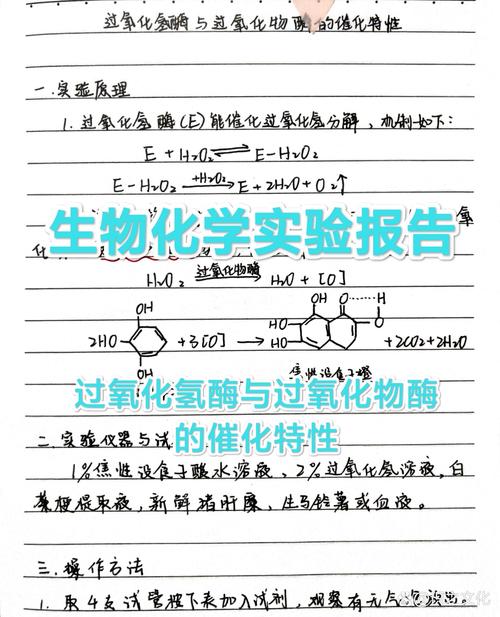 过氧化氢酶与过氧化物酶的催化特性
一.实验原理
1.过氧化氢酶(E)能催化过氧化氢分解,机制如下:
E + H₂O₂ ⇌ E-H₂O₂
E-H₂O₂ +H₂O₂→ E+2H₂O+O₂↑
氧
生物化学实验报告
化
H₂O₂ 过氧化物酶→ H₂O + [O]
OH OH O H
2HO +3[O] → HO O +2CO₂+2H₂O
OH HO
过氧化氢酶与过氧化物酶
的催化特性
二.实验仪器与试
1%焦性没食子酸水溶液,2%过氧化氢溶液,白
菜梗提取液,新鲜猪肝糜,生马铃薯或血液。
三.操作方法
1.取4支试管按下表加入试剂,观察有无气泡放出